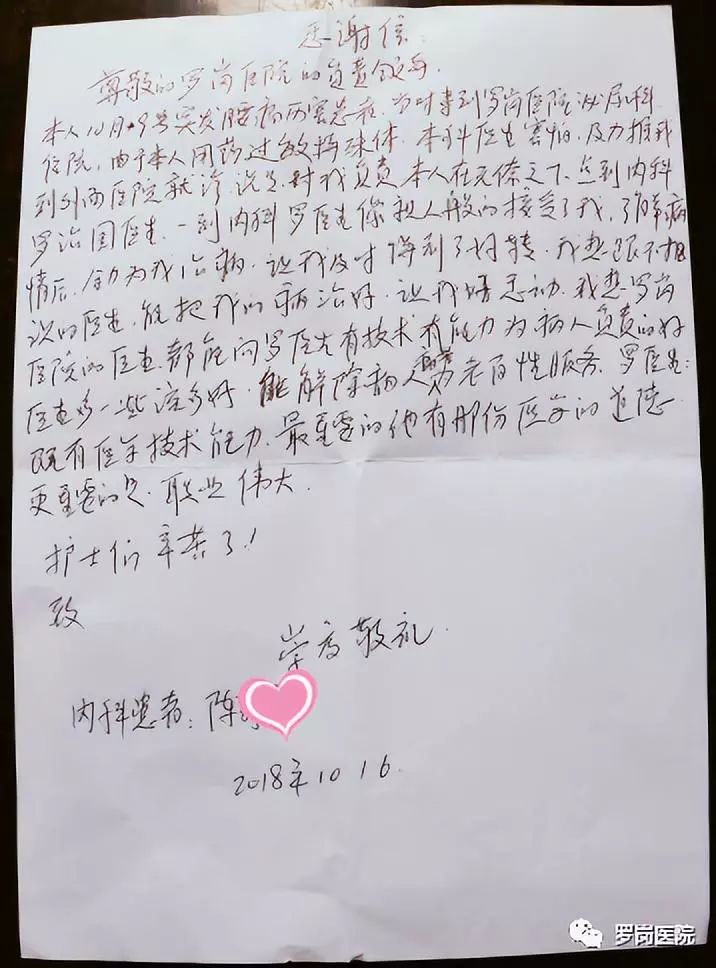 感谢信
尊敬的罗岗医院的负责领导.
本人10月9号突发腰痛历害总在.当时专到罗岗医院泌尿科
住院,由于本人用药过敏特殊体.本科医生害怕.及力推我
到外面医院就诊.说是对我负责.本人在无奈之下.点到内科
罗治国医生.一到内科罗医生像親人般的接受了我,了解病
情后.全力为我治病.让我及时得到了好转.我想跟不相
识的医生,能把我的病治好.让我好感动.我想罗岗
医院的医生.都能向罗医生有技术有能力为病人负责的好
医生多一些该多好.能解除病人 为老百性服务.罗医生:
既有医学技术能力.最重要的他有那份医学的道德
更重要的是.职业伟大.
护士们辛苦了!
致
崇高敬礼.
内科患者:陈
2018年10 16.
罗岗医院